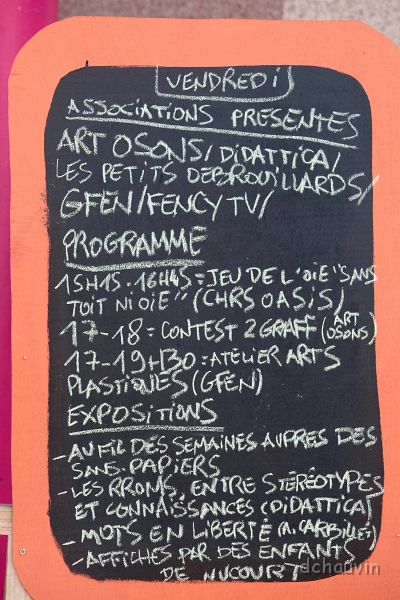 VENDREDI
ASSOCIATIONS PRESENTES
ART OSONS/DIDATTICA/
LES PETITS DEBROUILLARDS/
GFEN/FENCYTV/
PROGRAMME
15H15-16H45=JEU DE L'OIE "SANS
TOIT NI OIE" (CHRS OASIS)
17-18=CONTEST 2 GRAFF (ART OSONS)
17-19H30=ATELIER ARTS
PLASTIQUES (GFEN)
EXPOSITIONS
-AU FIL DES SEMAINES AUPRES DES
SANS-PAPIERS
-LES RROMS, ENTRE STÉRÉOTYPES
ET CONNAISSANCES (DIDATTICA)
-MOTS EN LIBERTÉ
-AFFICHES PAR DES ENFANTS
DE NUCOURT
dchauvin